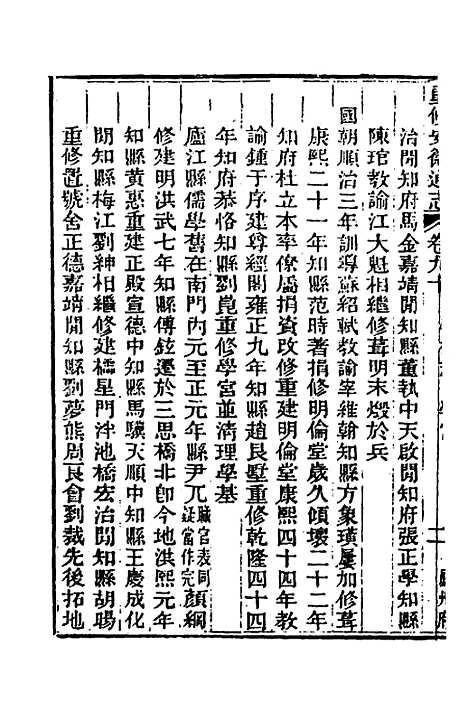 重修安徽通志
卷九十
二
治閒知府馬金嘉靖閒知縣董執中天啟閒知府張正學知縣
陳琯教諭江大魁相繼修葺明末燬於兵
國朝順治三年訓導蘇紹軾教諭宰維翰知縣方象璜屢加修葺
康熙二十一年知縣范時著捐修明倫堂歲久傾壞二十二年
知府杜立本率僚屬捐資改修重建明倫堂康熙四十四年教
諭鍾于序建尊經閣雍正九年知縣趙良墅重修乾隆四十四
年知府恭恪知縣劉崑重修學宮並清理學基
廬江縣儒學舊在南門內元至正元年縣尹兀職官表同疑當作完顏綱
修建明洪武七年知縣傅鉉遷於三思橋北卽今地洪熙元年
知縣黃惠重建正殿宣德中知縣馬驥天順中知縣王慶成化
閒知縣梅江劉紳相繼修建櫺星門泮池橋宏治閒知縣胡暘
重修置號舍正德嘉靖閒知縣劉夢熊周良會到裁先後拓地